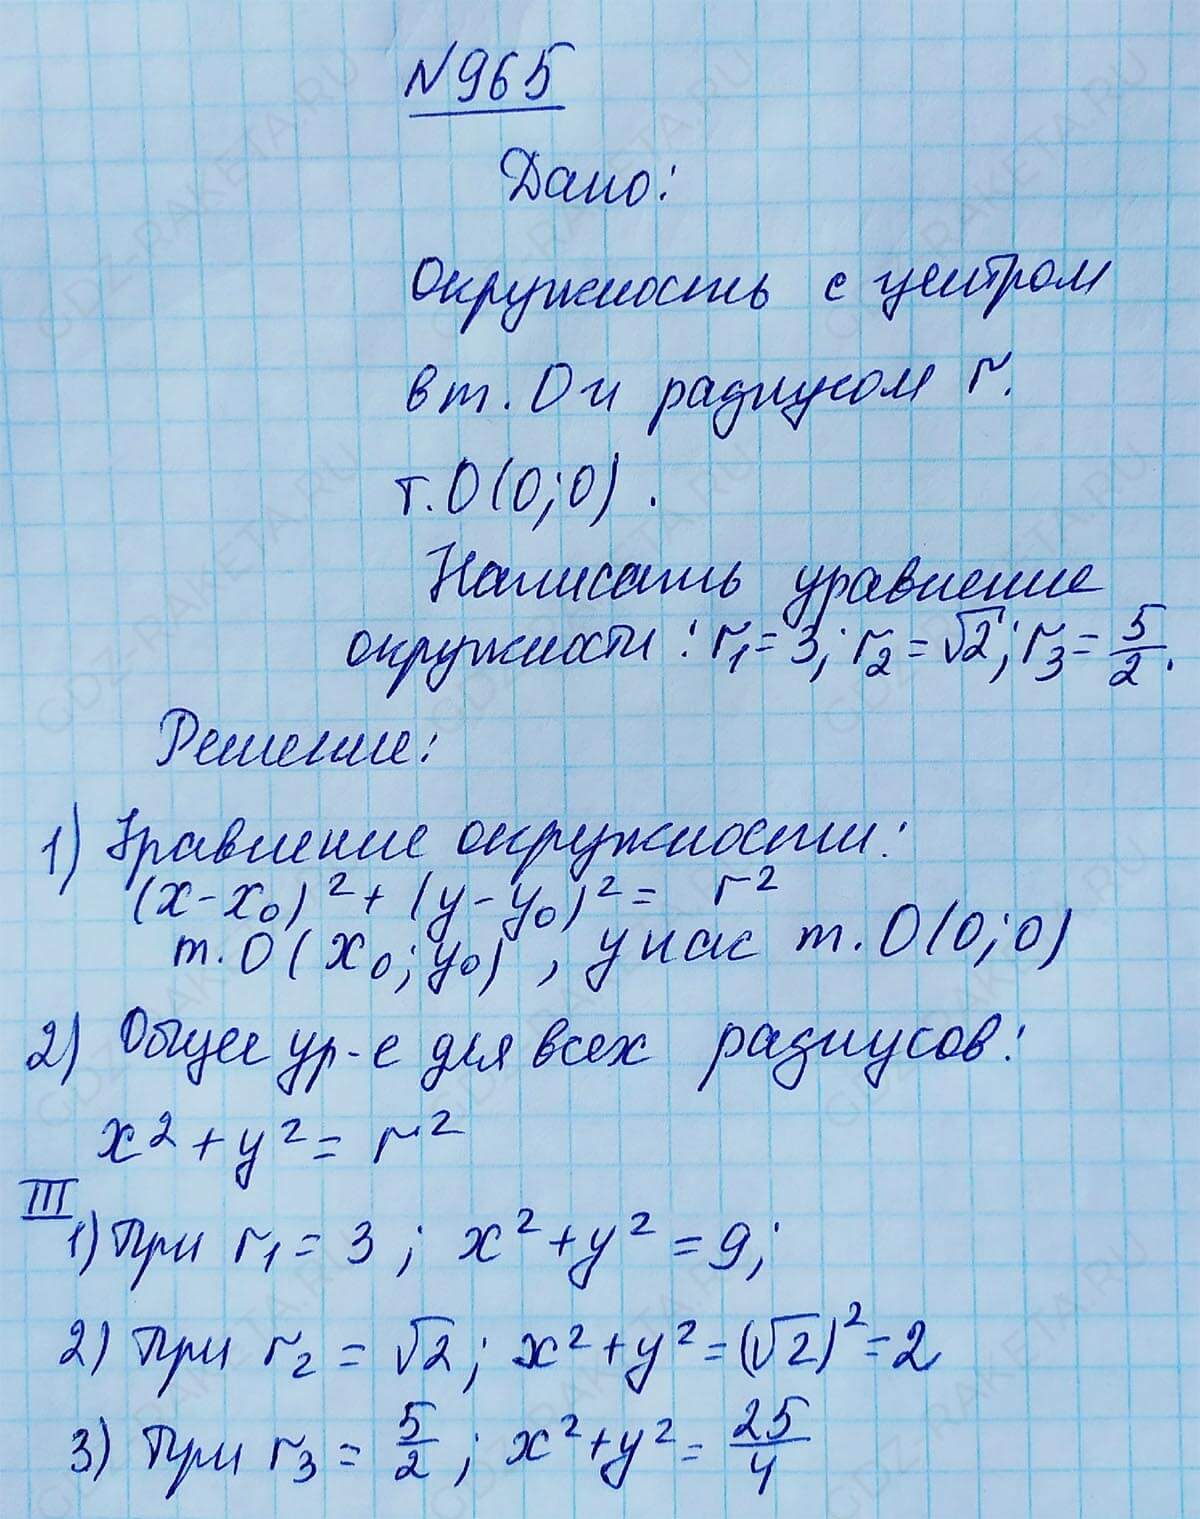 №965
Дано:
Окружность с центром
в т. О и радиусом r.
т. О(0;0).
Написать уравнение
окружности: r₁=3; r₂=√2; r₃=5/2.
Решение:
1) Уравнение окружности:
(x-x₀)²+(y-y₀)²= r²
т. О(x₀;y₀), у нас т. О(0;0)
2) Общее ур-е для всех радиусов:
x²+y²= r²
III
1) При r₁=3; x²+y²=9;
2) При r₂=√2; x²+y²=(√2)²=2
3) При r₃=5/2; x²+y²=25/4
GDZ-RAKETA.RU